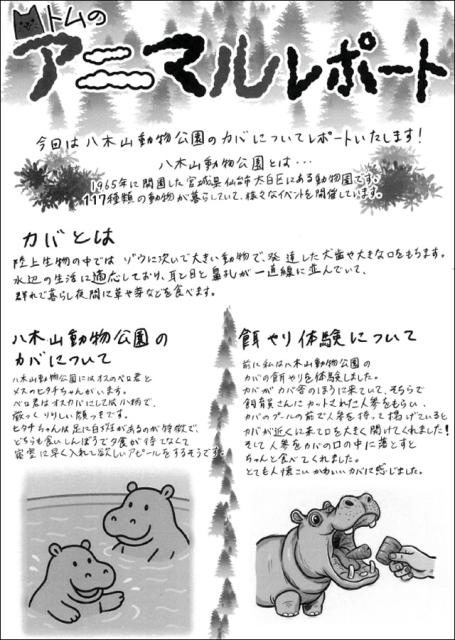 トムの
アニマルレポート
今日は八木山動物公園のカバについてレポートいたします!
八木山動物公園とは・・・
1965年に開園した宮城県仙台市太白区にある動物園です。
117種類の動物が暮らしていて、様々なイベントを開催しています。
カバとは
陸上生物の中ではゾウに次いで大きい動物で、発達した犬歯や大きな口をもちます。
水辺の生活に適応しており、耳と目と鼻孔が一直線に並んでいて、
群れで暮らし夜間に草や芽などを食べます。
八木山動物公園の
カバについて
八木山動物公園にはオスのベロ君と
メスのヒタチちゃんがいます。
ベロ君はオスカバにしては小柄で、
厳つくりりしい顔つきです。
ヒタチちゃんは足に白斑があるのが特徴で、
どちらも食いしんぼうで夕食が待てなくて
寝室に早く入れて欲しいアピールをするそうです。
餌やり体験について
前に私は八木山動物公園の
カバの餌やりを体験しました。
カバがカバ舎のほうに来ていて、そちらで
飼育員さんにカットされた人参をもらい、
カバのプールの前で人参を持って掲げていると
カバが近くに来て口を大きく開けてくれました!
そして人参をカバの口の中に落とすと
ちゃんと食べてくれました。
とても人懐こいかわいいカバに感じました。